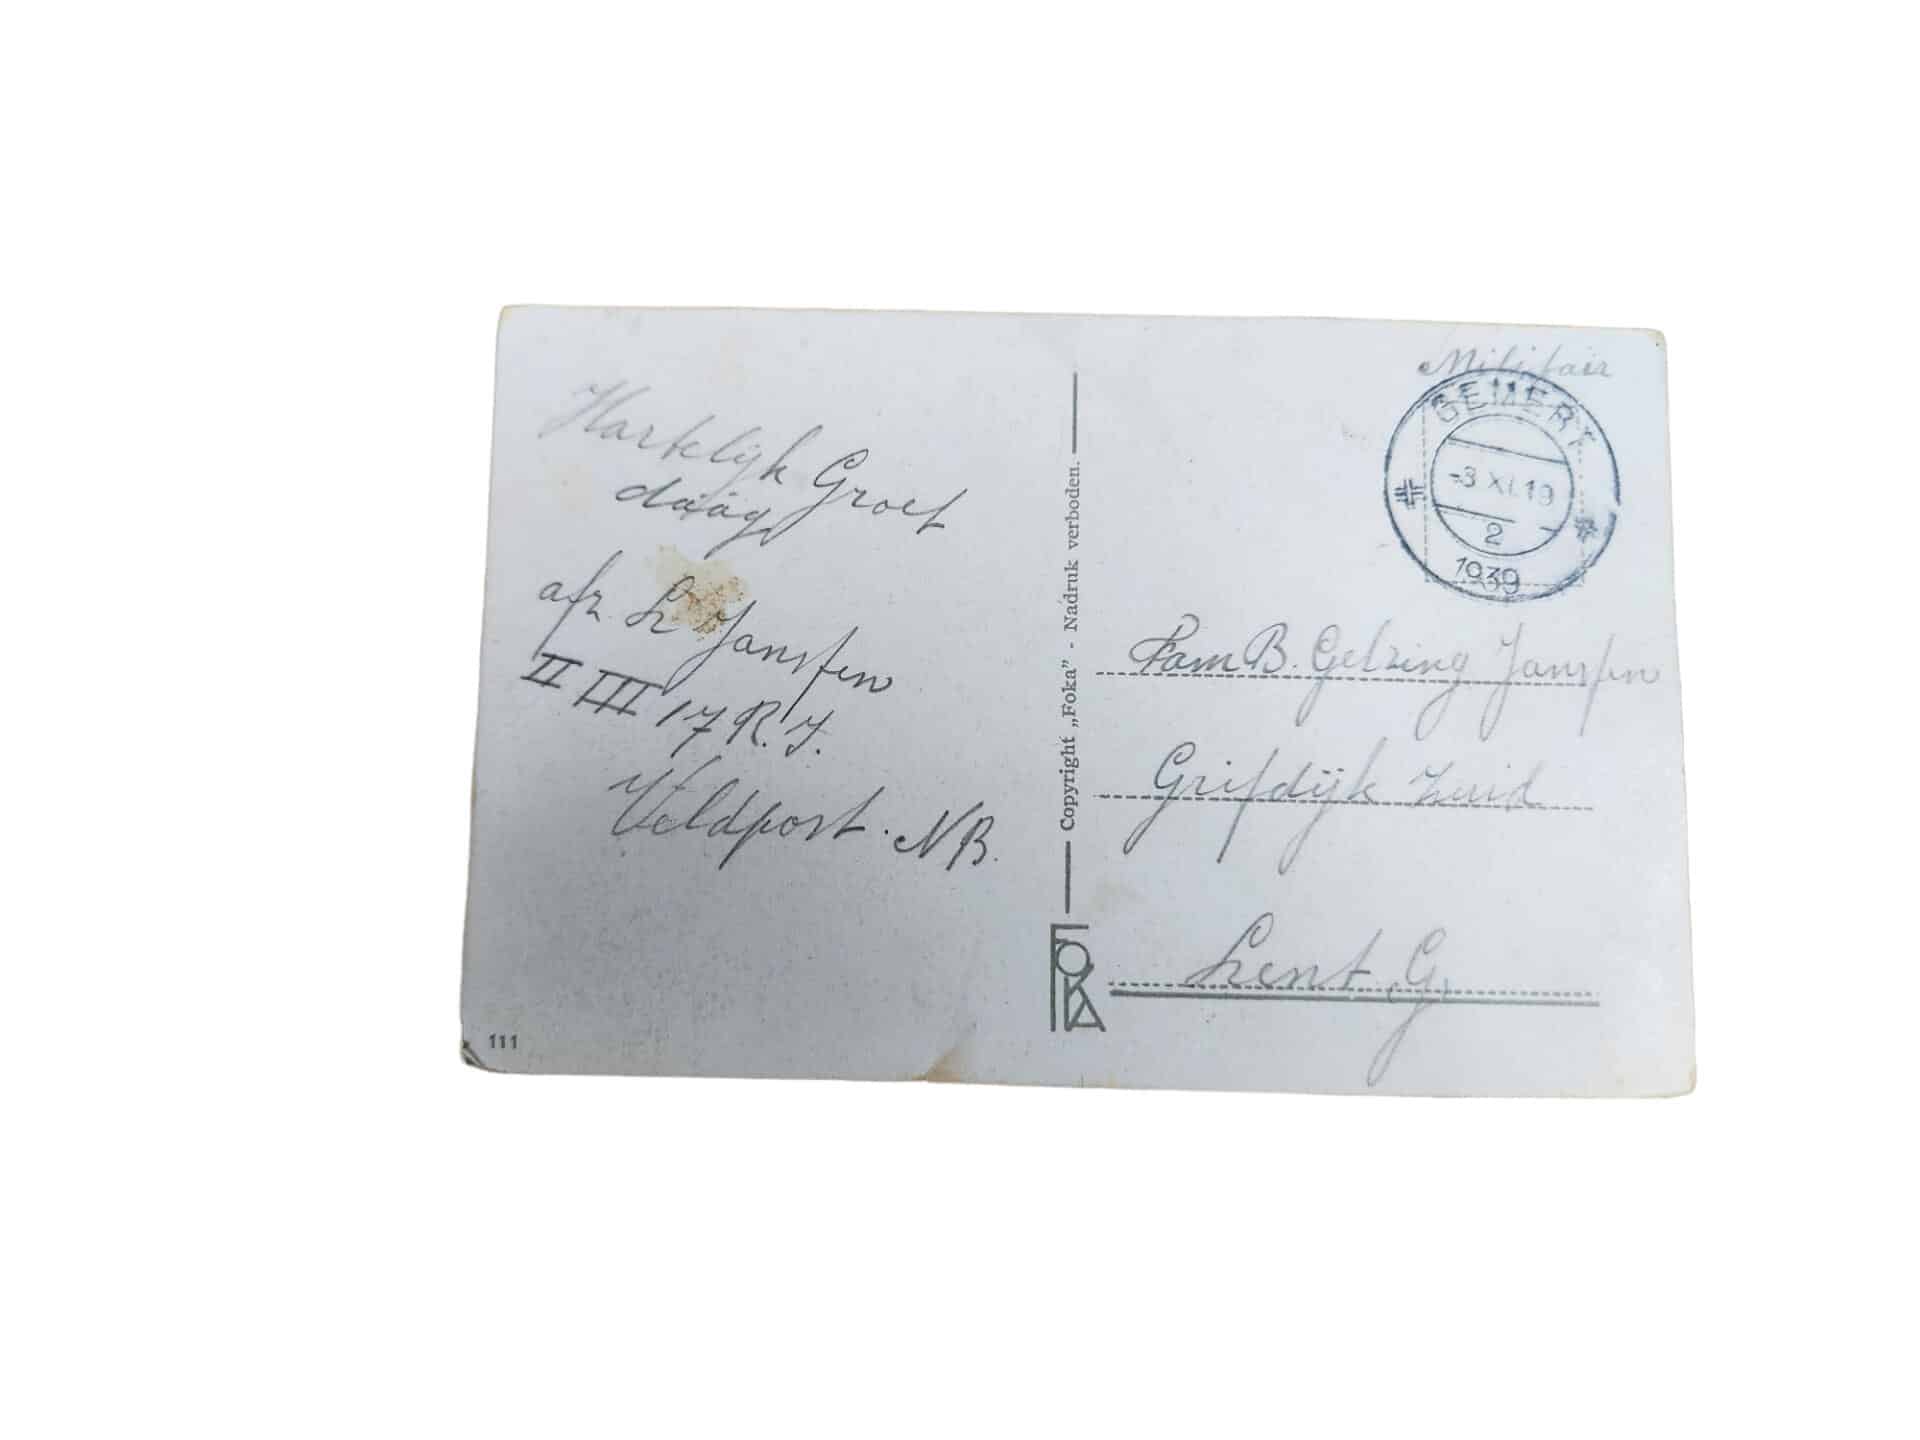 Hartelijk Groet
daàg
afz. L Jansfen
II III 17 R.I.
Veldpost. NB.
111
Copyright „Foka” - Nadruk verboden.
FOKA
Militair
GEMERT
-3 XI.19
2
1939
Fam B. Gelzing Jansfen
Grifdijk Zuid
Lent G,